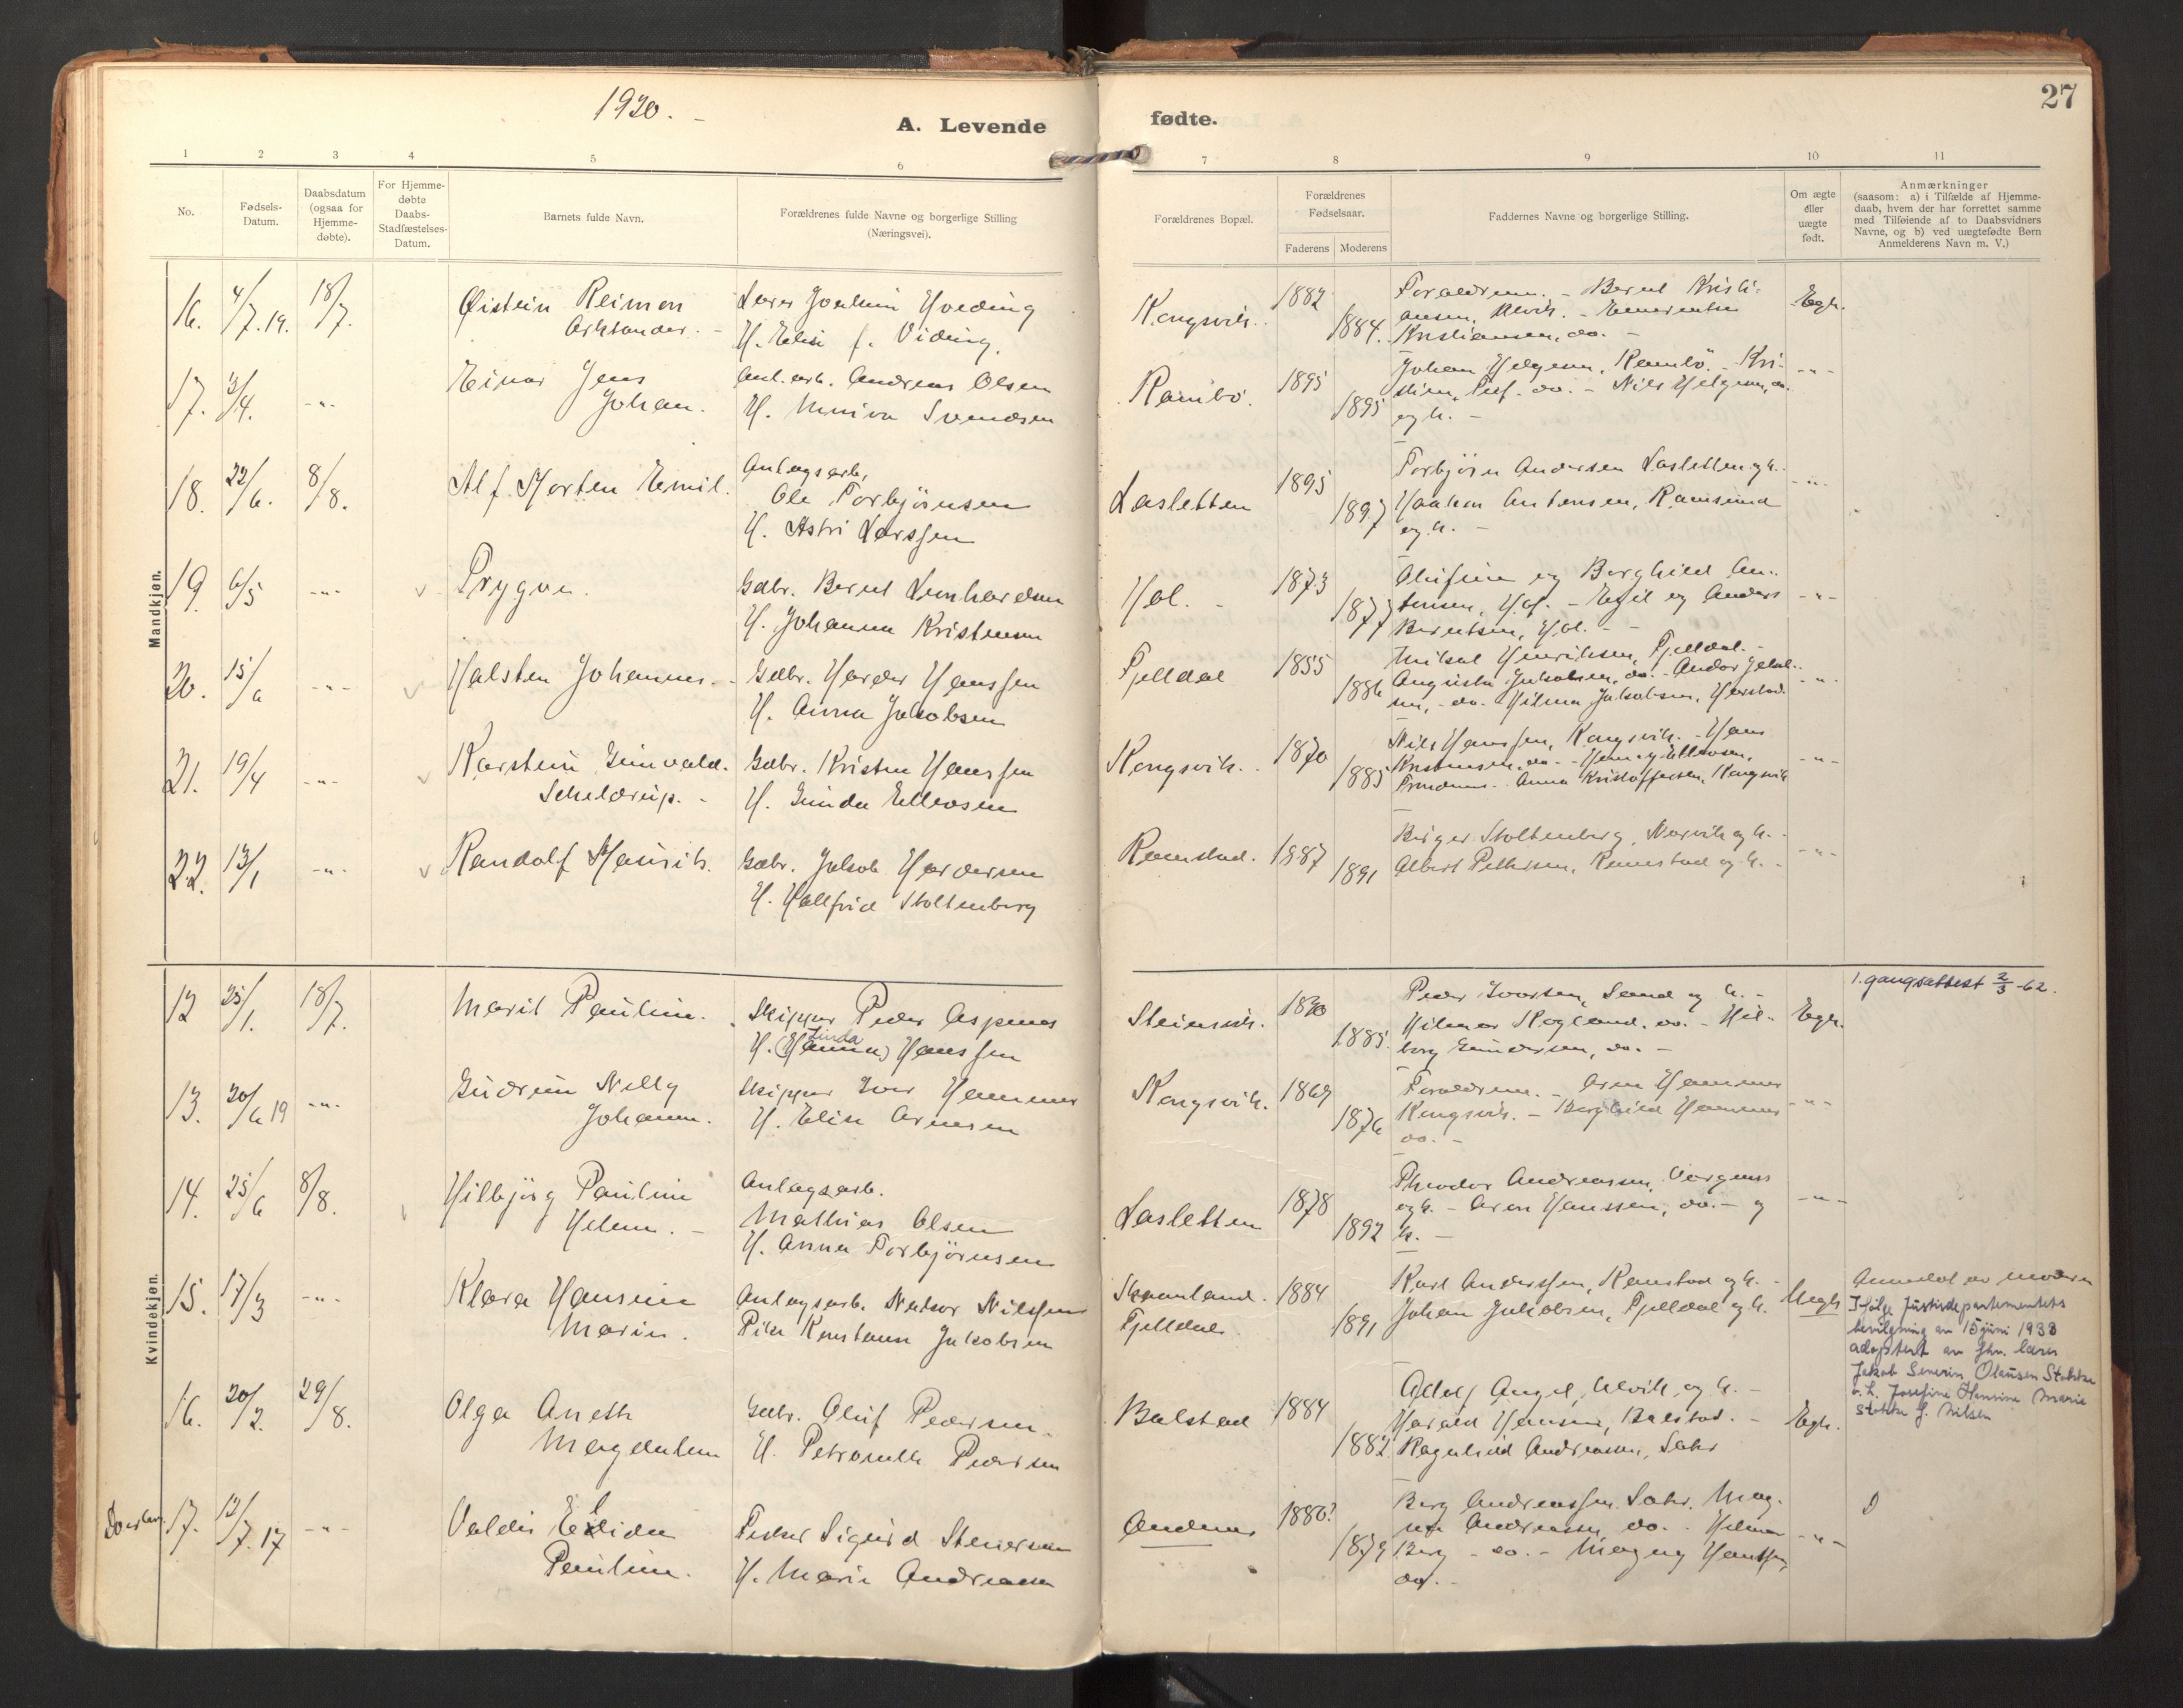 1920.
A. Levende
fødte.
27
1
2
3
4
5
6
7
8
9
10
11
No.
Fødsels-
Datum.
Daabsdatum
(ogsaa for
Hjemme-
døbte).
For Hjemme-
døbte
Daabs-
Stadfæstelses-
Datum.
Barnets fulde Navn.
Forældrenes fulde Navne og borgerlige Stilling
(Næringsvei).
Forældrenes Bopæl.
Forældrenes
Fødselsaar.
Faderens
Moderens
Faddernes Navne og borgerlige Stilling.
Om ægte
eller
uægte
født.
Anmærkninger
(saasom: a) i Tilfælde af Hjemme-
daab, hvem der har forrettet samme
med Tilføiende af to Daabsvidners
Navne, og b) ved uægtefødte Børn
Anmelderens Navn m. V.)
Mandkjøn.
16.
4/7.19.
18/7.
Øistein Reimon
H. Elise f. Viding.
Kongsvik.
1882
1884.
Forældrene. - Bernt Kristi-
ansen, Ulvik. -
Kristiansen, do. -
Egte.
17.
3/4.
-"-
Einar Jens
Johan.
Anl.arb. Andreas Olsen
H. Minira Svendsen
Rambö.
1895
1895
Johan Helgesen, Rambö. - Kri-
do. - Nils Helgesen, do.
og h. -
-"-
18.
22/6.
8/8.
Alf Morten Emil.
Anlagsarb.
Ole Torbjörnsen
H. Astri Larssen
Lasletten
1895
1897
Torbjörn Andersen Lasletten og h.
Haakon Antonsen, Ramsund
og h. -
-"-
19.
6/5
-"-
v
Trygve.
Gdbr. Bernt Lenhardsen
H. Johanna Kristensen
Hol. -
1873
1877
Olufine og Borghild An-
tonsen, Hol. - Egil og Anders
Berntsen, Hol. -
-"-
20.
15/6
-"-
v
Halsten Johannes. -
Gdbr. Harder Hanssen
H. Anna Jakobsen
Fjelldal
1855
1886
Mikal Henriksen, Fjelldal. -
Augusta Jakobsen, do. - Andor Jakob-
sen, - do. Hilma Jakobsen, Harstad.
-"-
21.
19/4
-"-
v
Karstein Gunvald.
Scheldrup. -
Gdbr. Kristen Hanssen
H. Gunda Ellevsen
Kongsvik.
1870
1885
Nils Hanssen, Kongsvik. - Hans
Kristensen, do. - Henry Ellevsen,
Anna Kristoffersen, Kongsvik
-"-
22.
13/1
-"-
v
Randolf Henrik.
Gdbr. Jakob Hardersen
H. Hallfrid Stoltenberg
Ramstad.
1887
1891
Birger Stoltenberg, Narvik og h. -
Albert Pettersen, Ramstad og h. -
-"-
Kvindekjøn.
12
25/1.
18/7.
Marit Pauline.
Skipper Peder Aspenes
Linda
H. (Hanna) Hanssen
Steinsvik.
1880
1885.
Peder Ivarsen, Sand og h. -
Hilmar Skogland, do. - Hil-
borg Gundersen, do. -
Egte.
1.gangsattest 2/3-62.
13.
30/6 19
-"-
Gudrun Nelly
Johanne.
Skipper Ivar Hammer
H. Elise Arnesen
Kongsvik.
1869
1876
Forældrene. - Arne Hammer
Kongsvik. - Borghild Hammer
do. -
-"-
14.
25/6
8/8.
v
Hilbjörg Pauline
Helene. -
Anlagsarb.
Mathias Olsen
H. Anna Torbjörnsen
Lasletten
1878
1892
Theodor Andreassen,
og h. - Aron Hanssen, do. - og
h. -
-"-
15.
17/3
-"-
Klara Hansine
Marie.
Anlagsarb. Nilssen
Pike Konstanse Jakobsen
Skaanland.
Fjelldal.
1884
1891
Karl Anderssen, Ramstad og h. -
Johan Jakobsen, Fjelldal og h.
Uegte
Anmeldt av moderen
Ifølge Justisdepartementets
bevilgning av 15 juni 1933
adoptert av fhv. lærer
Jakob Severin Olausen Stokke
o. h. Josefine Hansine Marie
Stokke f. Nilsen
16.
20/2.
29/8.
Olga Aneth
Magdalene
Gdbr. Oluf Pedersen.
H. Petronelle Pedersen
Balstad
1884
1882.
Angel, Ulvik, og h. -
Harald Hansen, Balstad. -
Ragnhild Andreassen,
Egte.
17.
12/7.17
-"-
Valdis Elida
Pauline.
Fisker Sigurd Stenersen
H. Marie Andreassen
Andenes
1880?
1879
Berg Andreassen. Mag-
Andreassen, do. - Hilmar
Berg - do. - Magny Hanssen,
do. -
-"-